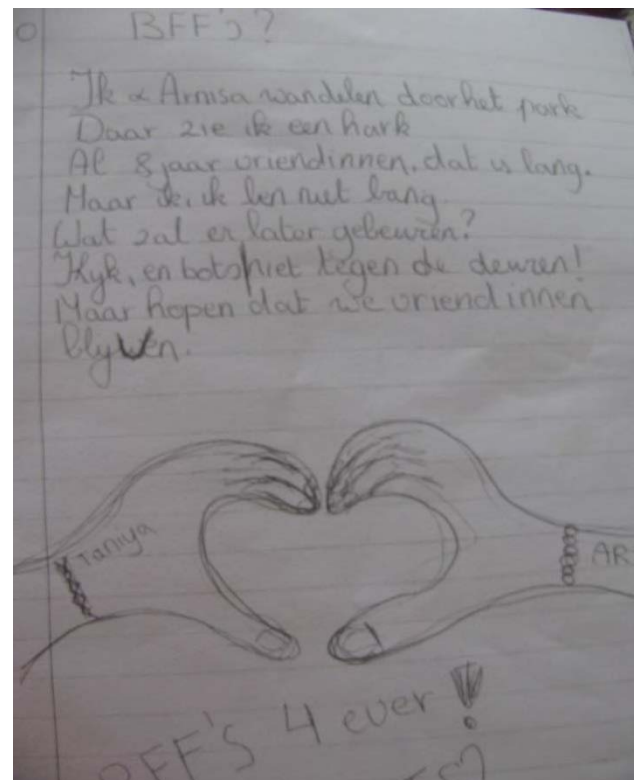 BFF's?
Ik & Armsa wandelen door het park
Daar zie ik een hark
Al 8 jaar vriendinnen. dat is lang.
Maar ik, ik ben niet bang
Wat zal er later gebeuren?
Kyk, en bots niet tegen de deuren!
Maar hopen dat we vriendinnen
blyven.
Taniya
AR
BFF'S 4 ever!